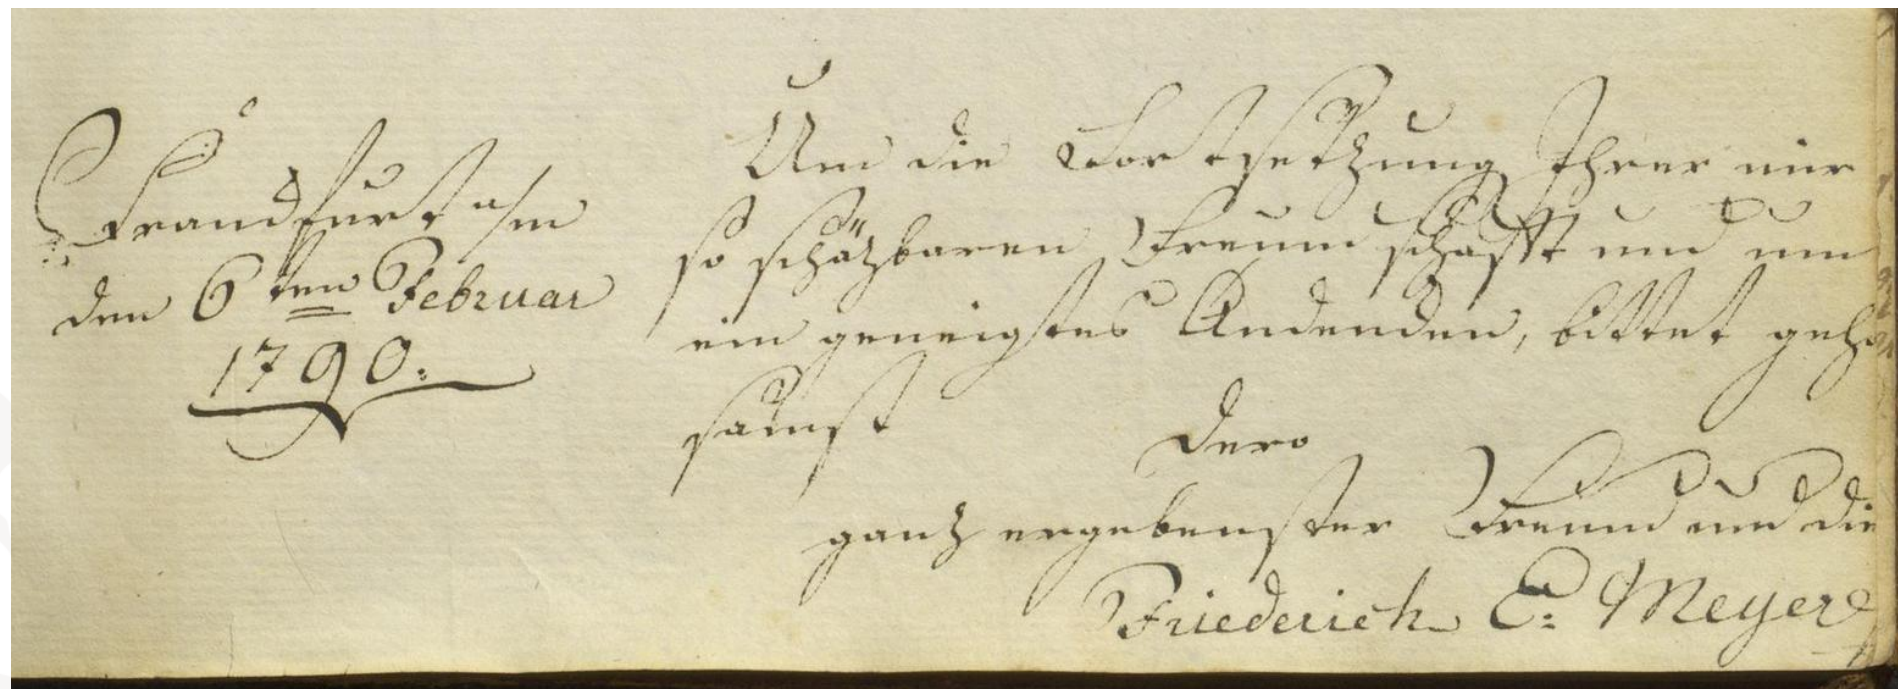 Franckfurt a/m
den 6ten Februar
1790.
Um die Fortsetzung Ihrer mir
so schäzbaren Freundschafft und um
ein geneigtes Andencken, bittet geho
samst
Dero
ganz ergebenster Freund und Die
Friederich C: Meyer